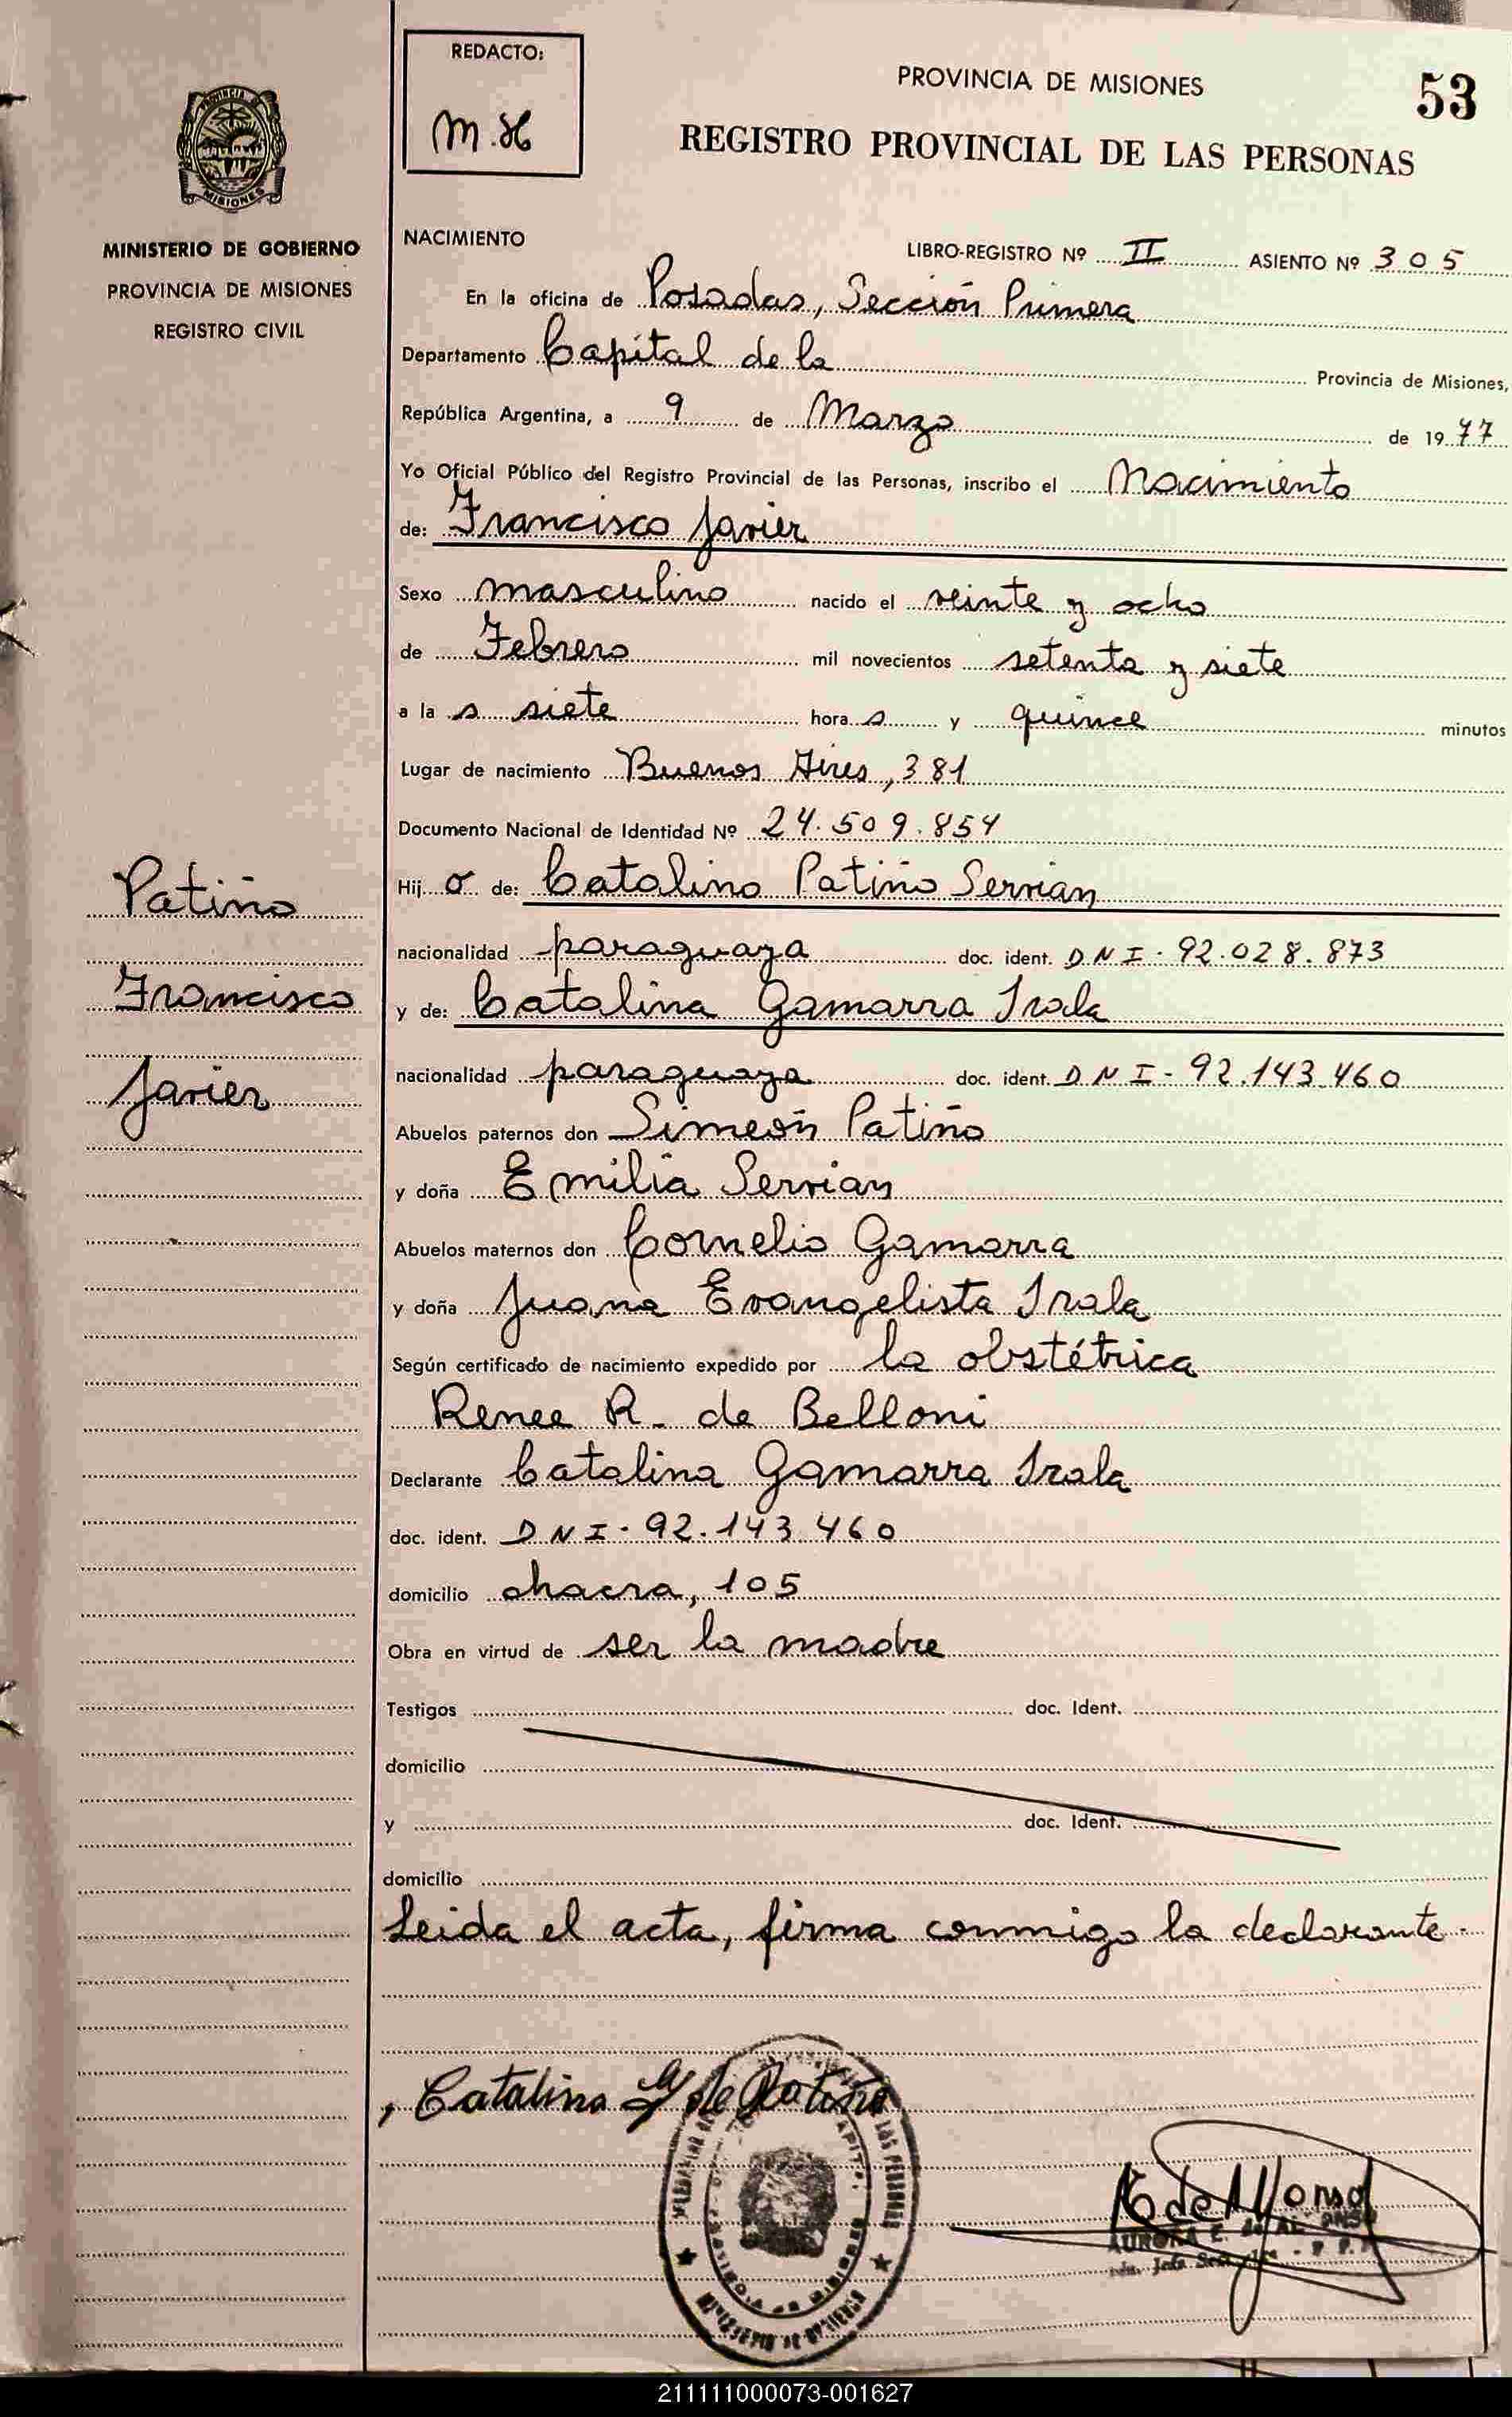 REDACTO:
M.H
PROVINCIA DE MISIONES
53
REGISTRO PROVINCIAL DE LAS PERSONAS
MISIONES
MINISTERIO DE GOBIERNO
PROVINCIA DE MISIONES
REGISTRO CIVIL
NACIMIENTO
LIBRO-REGISTRO Nº II ASIENTO Nº 305
En la oficina de Posadas, Sección Primera
Departamento Capital de la Provincia de Misiones,
República Argentina, a 9 de Marzo de 1977
Yo Oficial Público del Registro Provincial de las Personas, inscribo el Nacimiento
de: Francisco Javier
Sexo masculino nacido el veinte y ocho
de Febrero mil novecientos setenta y siete
a la s siete hora s y quince minutos
Lugar de nacimiento Buenos Aires, 381
Documento Nacional de Identidad Nº 24.509.854
Patiño
Francisco
Javier
Hij o de: Catalino Patiño Servian
nacionalidad paraguaya doc. ident. DNI-92.028.873
y de: Catalina Gamarra Irala
nacionalidad paraguaya doc. ident. DNI-92.143.460
Abuelos paternos don Simeón Patiño
y doña Emilia Servian
Abuelos maternos don Cornelio Gamarra
y doña Juana Evangelista Irala
Según certificado de nacimiento expedido por la obstétrica
Renee R. de Belloni
Declarante Catalina Gamarra Irala
doc. ident. DNI-92.143.460
domicilio chacra, 105
Obra en virtud de ser la madre
Testigos doc. Ident.
domicilio
y doc. Ident.
domicilio
Leida el acta, firma conmigo la declarante-
Catalina G de Patiño
LAS PERSONAS
MINISTERIO DE GOBIERNO
AURORA E. de ALFONSO
211111000073-001627